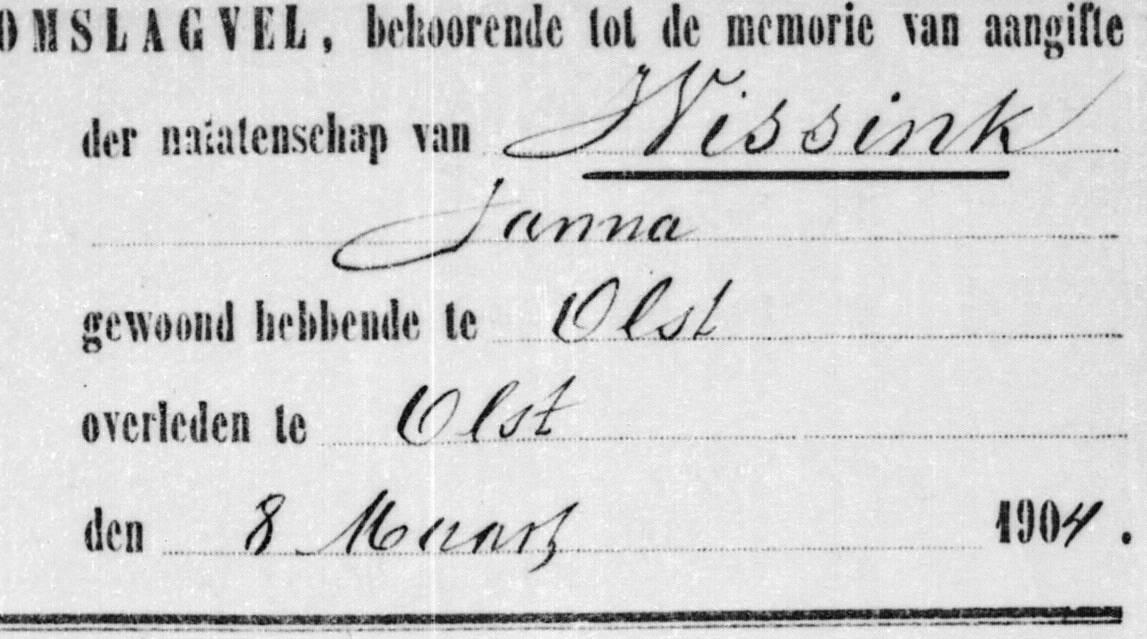 OMSLAGVEL, behoorende tot de memorie van aangifte
der nalatenschap van Wissink
Janna
gewoond hebbende te Olst
overleden te Olst
den 8 Maart 1904.